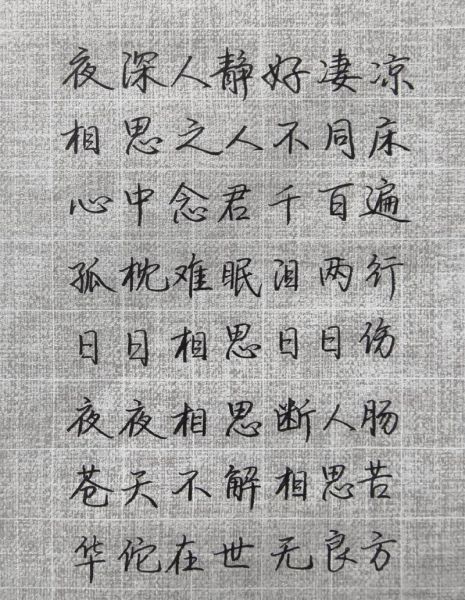 夜深人静好凄凉
相思之人不同床
心中念君千百遍
孤枕难眠泪两行
日日相思日日伤
夜夜相思断人肠
苍天不解相思苦
华佗在世无良方